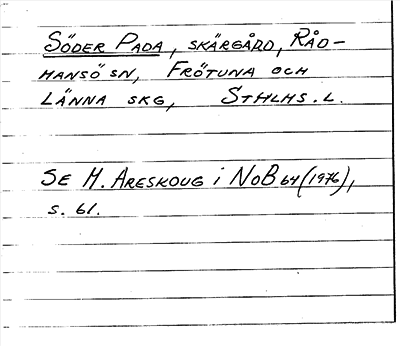 SÖDER PADA, SKÄRGÅRD, RÅD-
MANSÖ SN, FRÖTUNA OCH
LÄNNA SKG, STHLMS. L.
SE H. ARESKOUG i NoB 64 (1976),
S. 61.